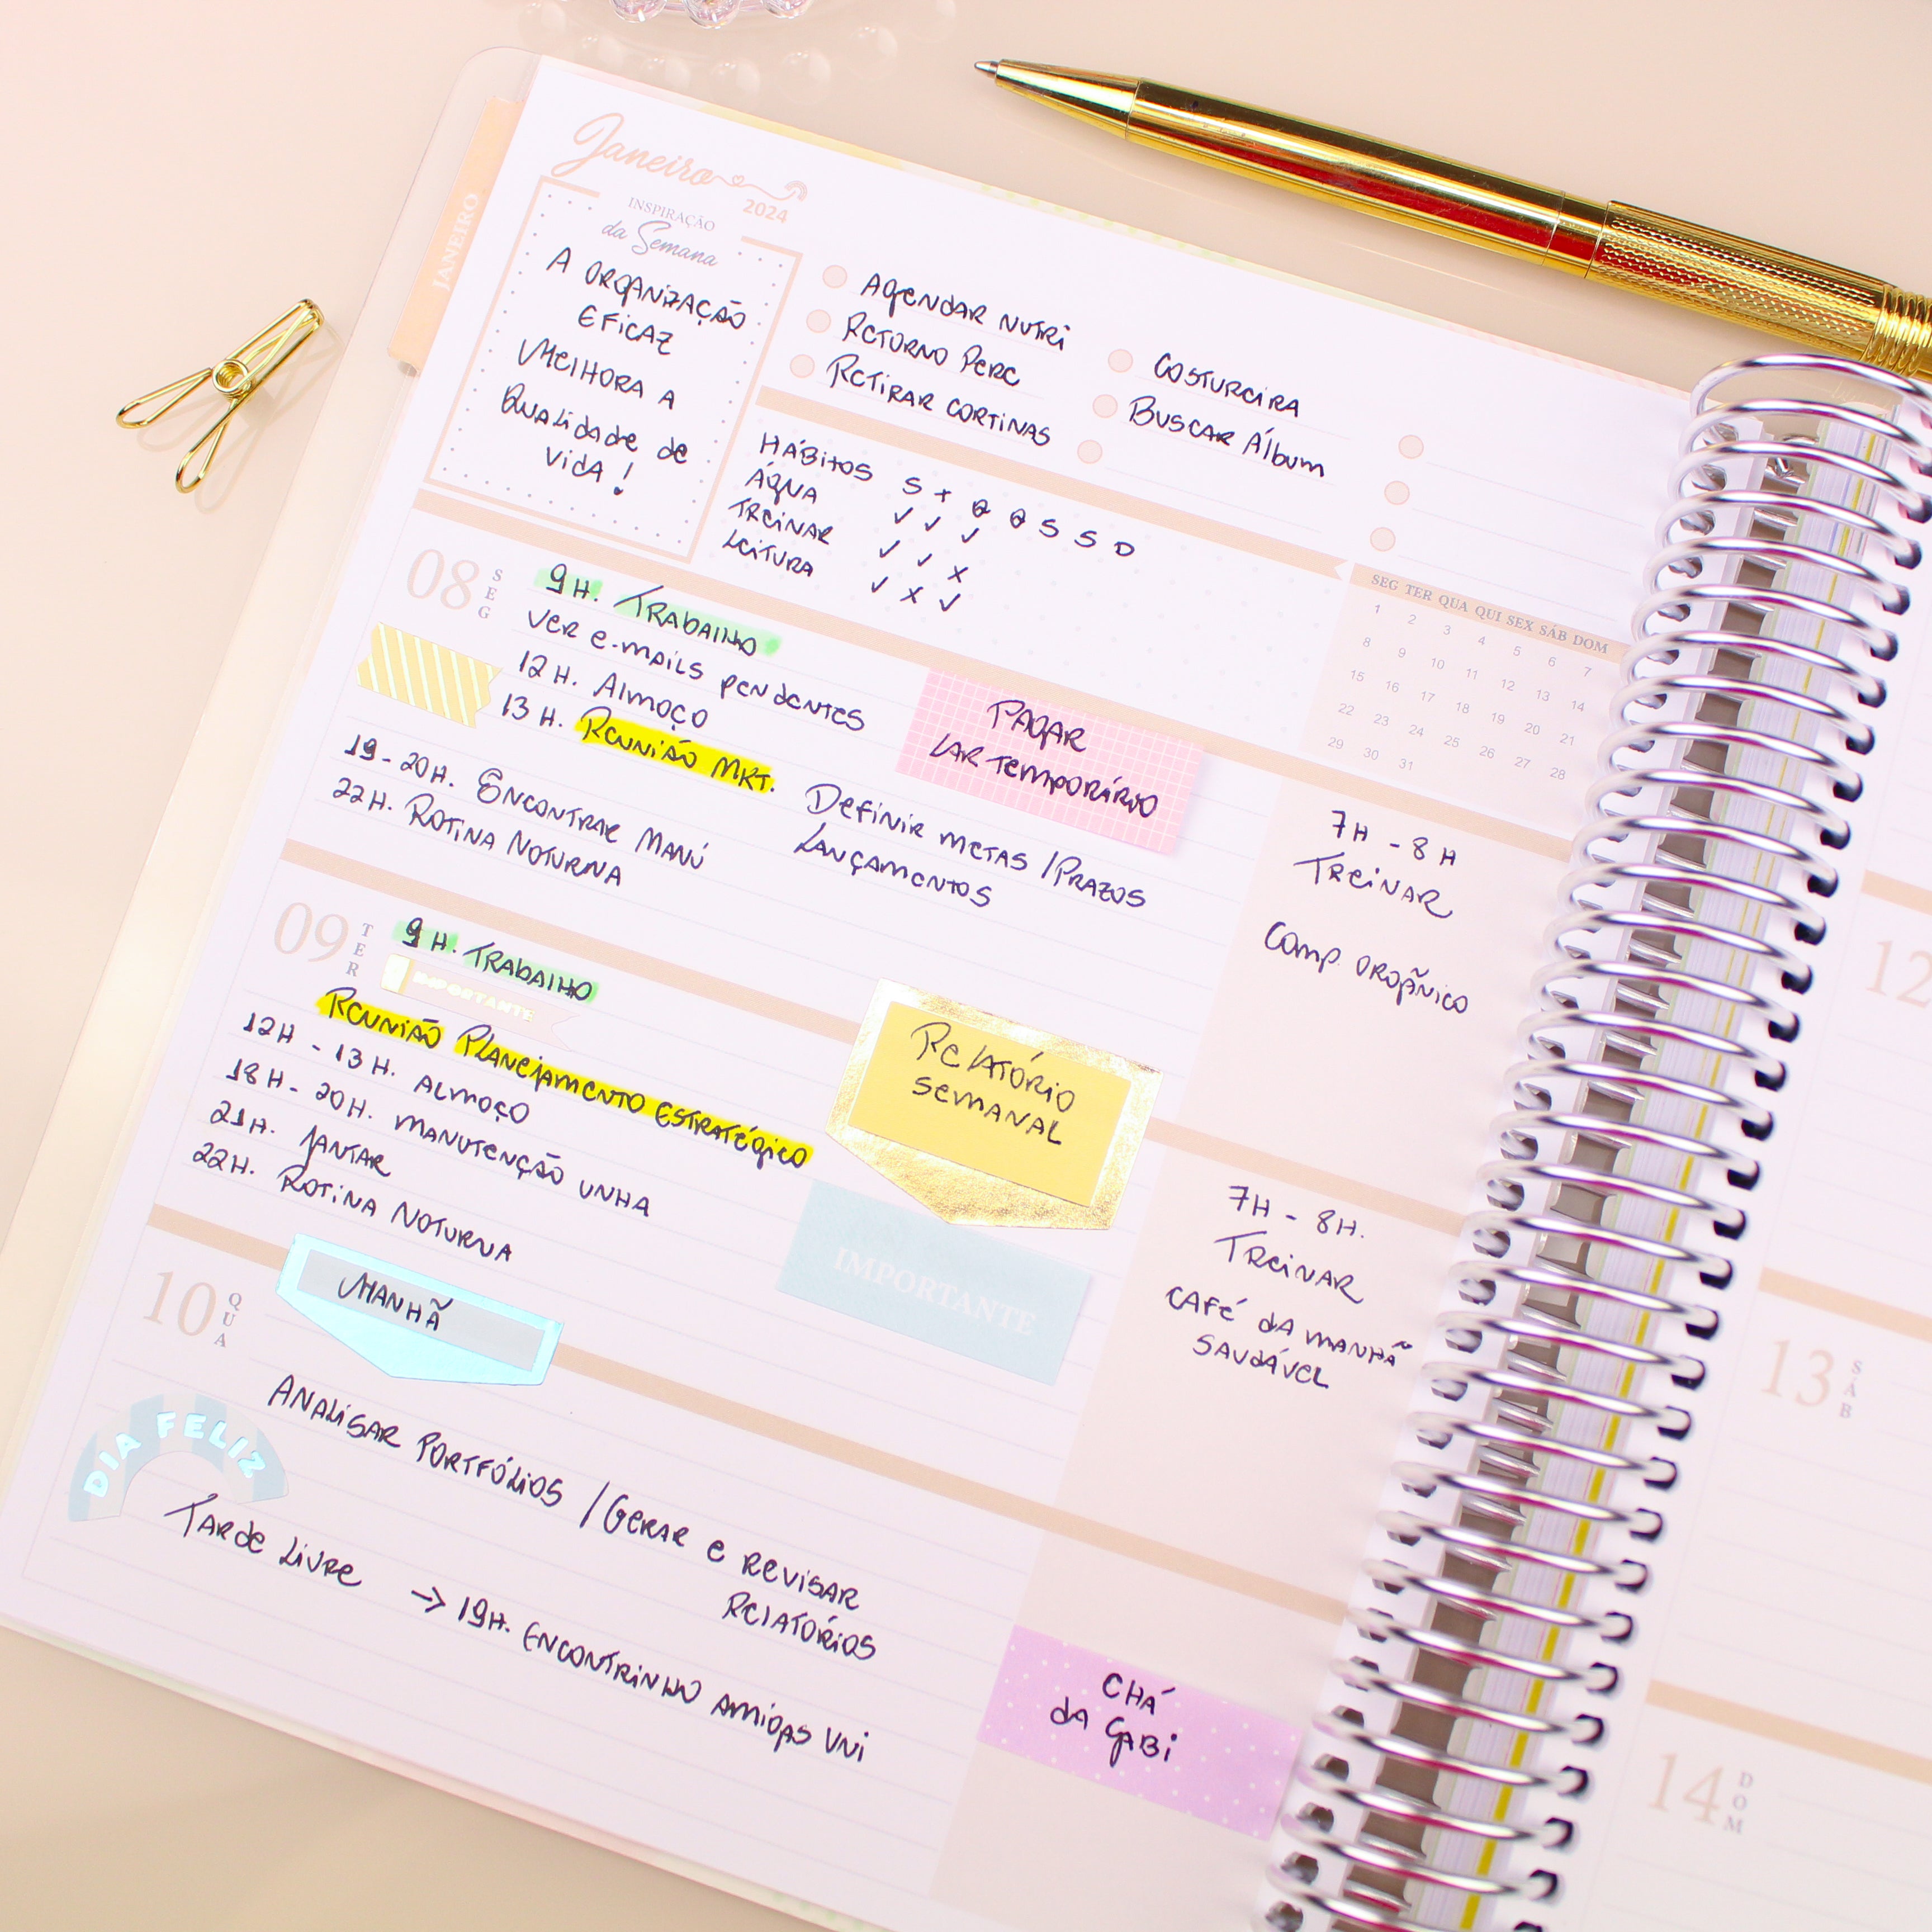 JANEIRO
Janeiro
2024
INSPIRAÇÃO
da Semana
A ORGANIZAÇÃO
EFICAZ
MELHORA A
QUALIDADE DE
VIDA!
AGENDAR NUTRI
RETORNO PERC
RETIRAR CORTINAS
COSTUREIRA
BUSCAR ÁLBUM
HÁBITOS S T Q Q S S D
ÁGUA ✓ ✓ ✓
TREINAR ✓ ✓ X
LEITURA ✓ X ✓
SEG TER QUA QUI SEX SÁB DOM
1 2 3 4 5 6 7
8 9 10 11 12 13 14
15 16 17 18 19 20 21
22 23 24 25 26 27 28
29 30 31
08 SEG
9H. TRABALHO
VER E-MAILS PENDENTES
12H. ALMOÇO
13H. REUNIÃO MKT.
DEFINIR METAS / PRAZOS
LANÇAMENTOS
19-20H. ENCONTRAR MANÚ
22H. ROTINA NOTURNA
PAGAR
LAR TEMPORÁRIO
7H - 8H
TREINAR
COMP. ORGÂNICO
09 TER
9H. TRABALHO
IMPORTANTE
REUNIÃO PLANEJAMENTO ESTRATÉGICO
12H - 13H. ALMOÇO
18H - 20H. MANUTENÇÃO UNHA
21H. JANTAR
22H. ROTINA NOTURNA
RELATÓRIO
SEMANAL
IMPORTANTE
7H - 8H.
TREINAR
CAFÉ DA MANHÃ
SAUDÁVEL
10 QUA
MANHÃ
DIA FELIZ
ANALISAR PORTFÓLIOS / GERAR E REVISAR
RELATÓRIOS
TARDE LIVRE → 19H. ENCONTRINHO AMIGAS UNI
CHÁ
DA GABI
12
13 SÁB
14 DOM